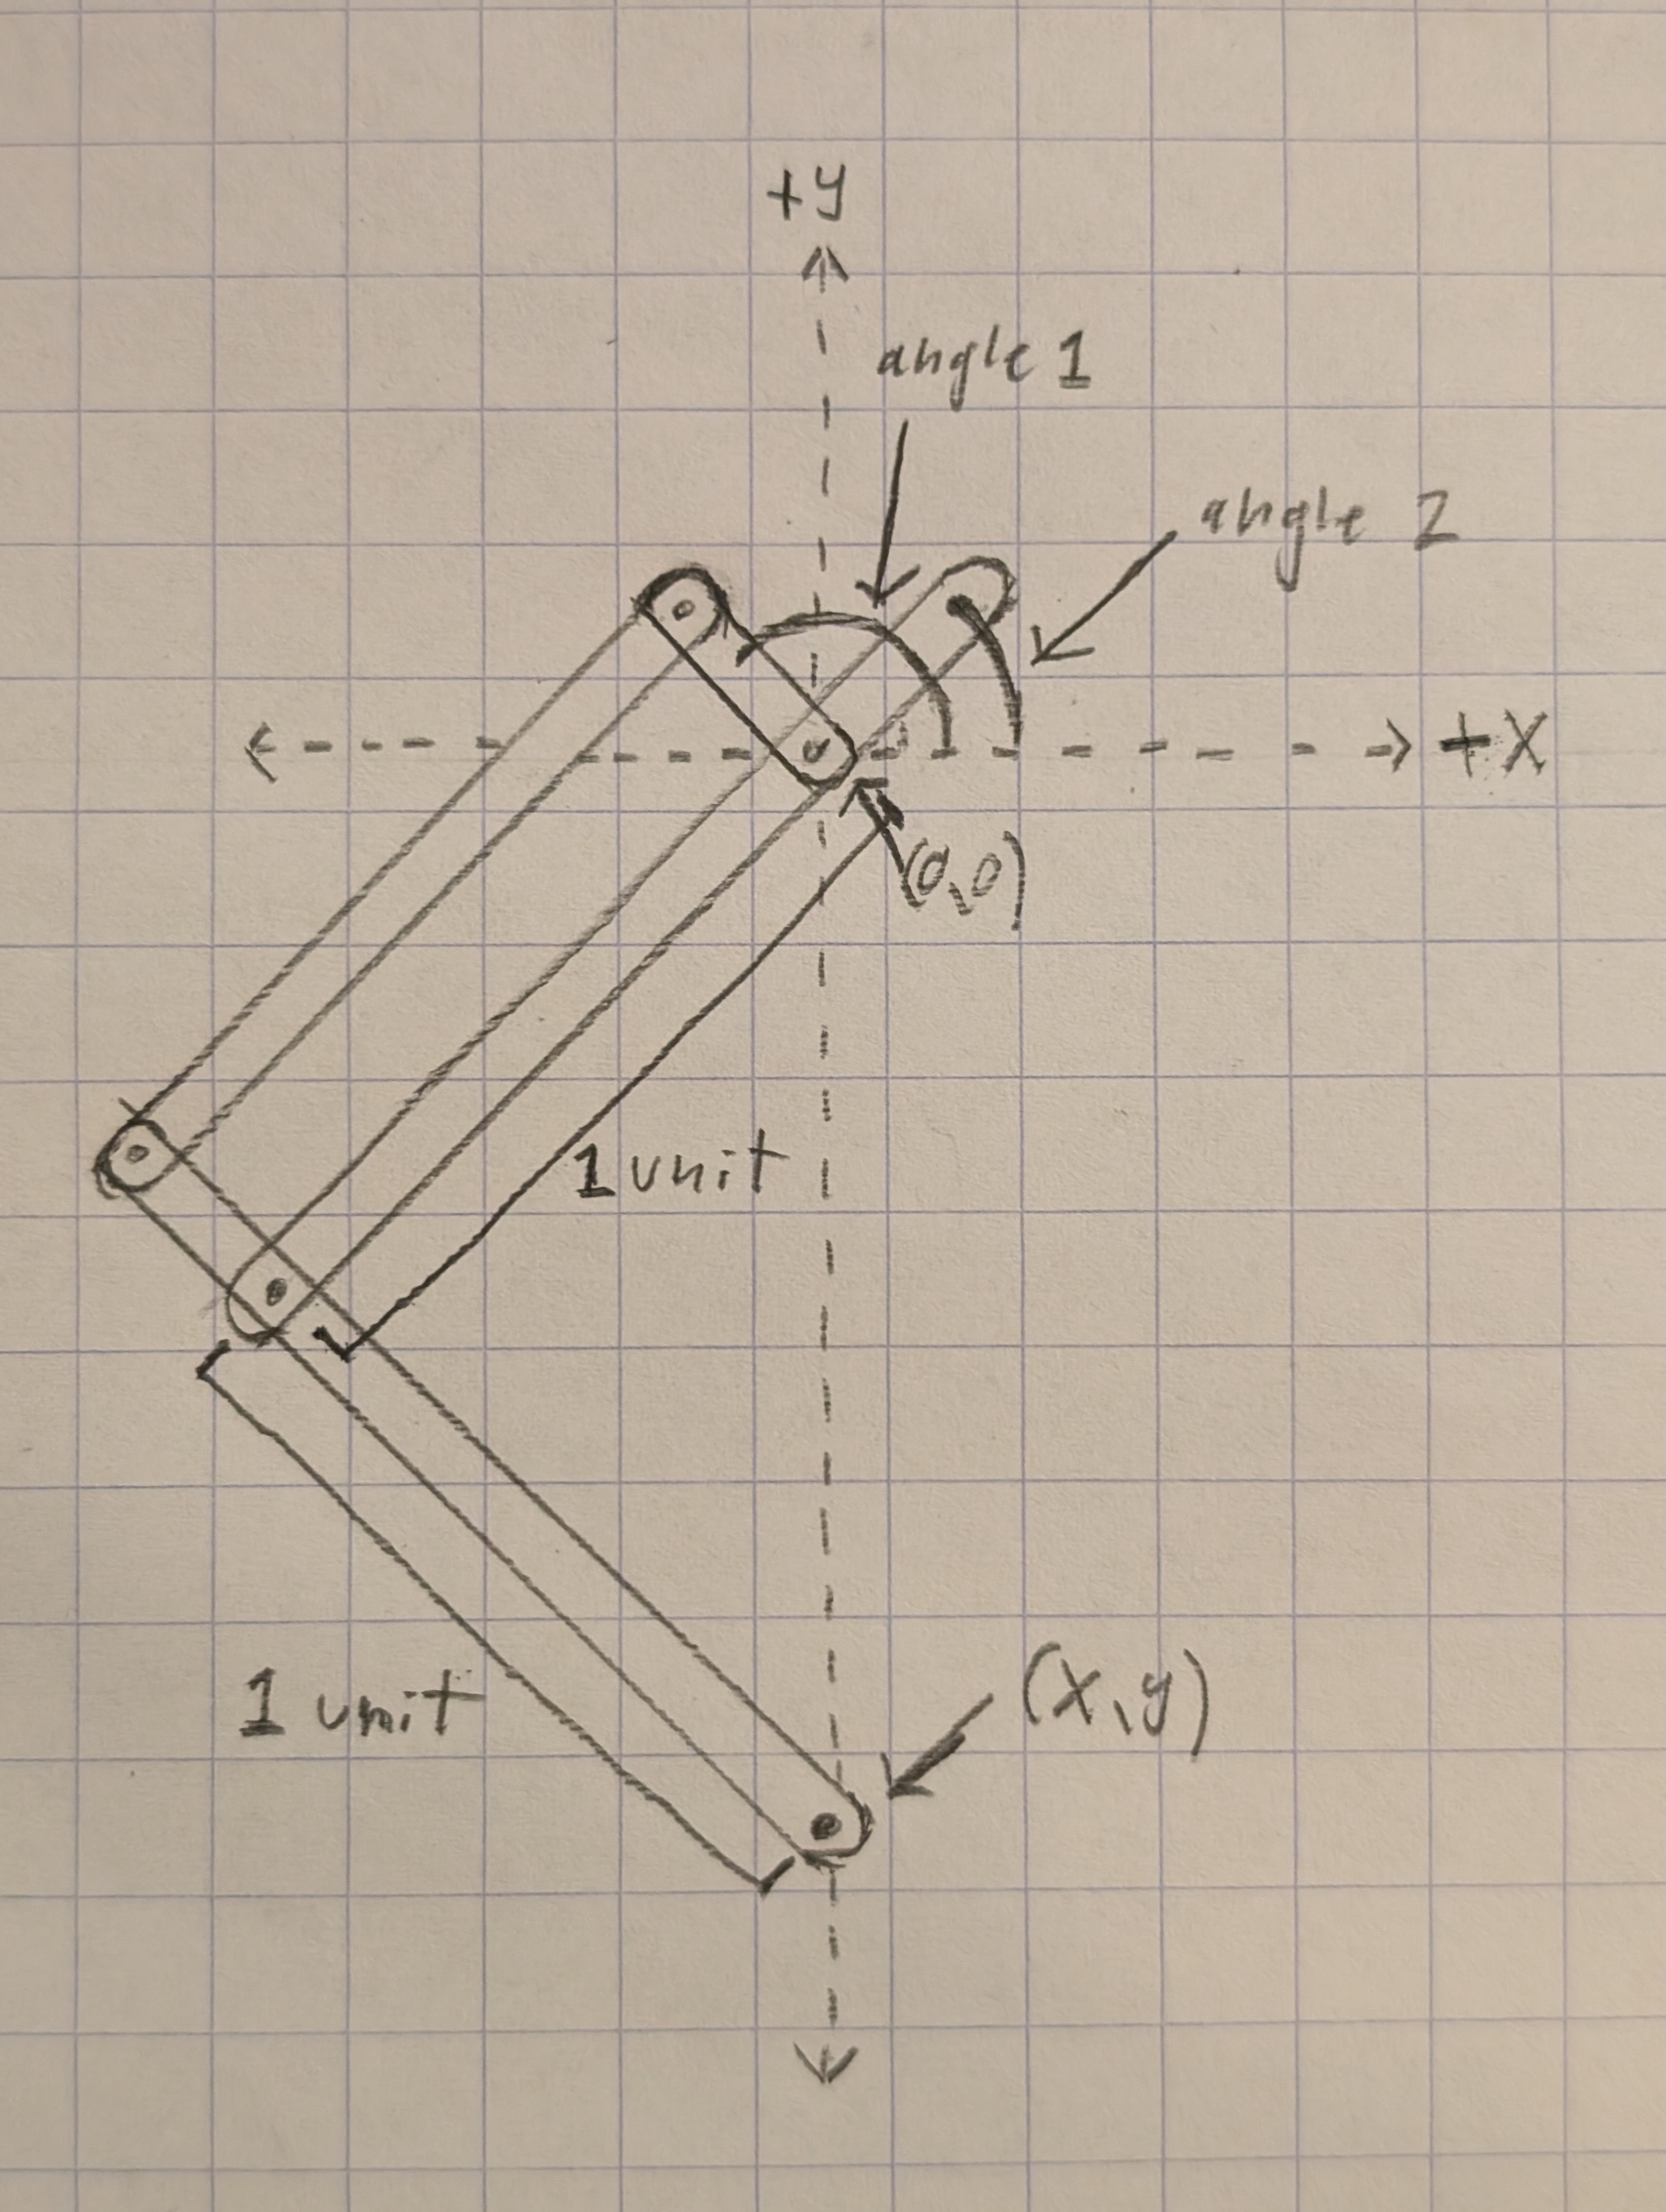 +y
angle 1
angle 2
+X
(0,0)
1 unit
1 unit
(X,y)